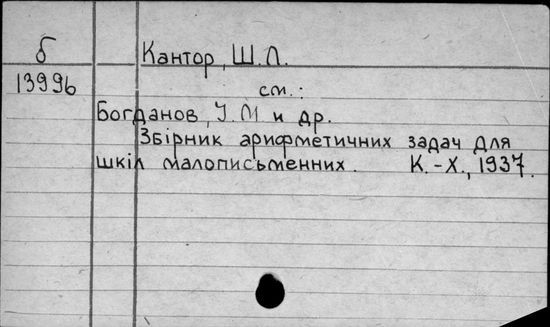 б
13996
Кантор, Ш.Л.
см.:
Богданов, І.М и др.
Збірник арифметичних задач для
шкіл малописьменних. К.-Х., 1937.